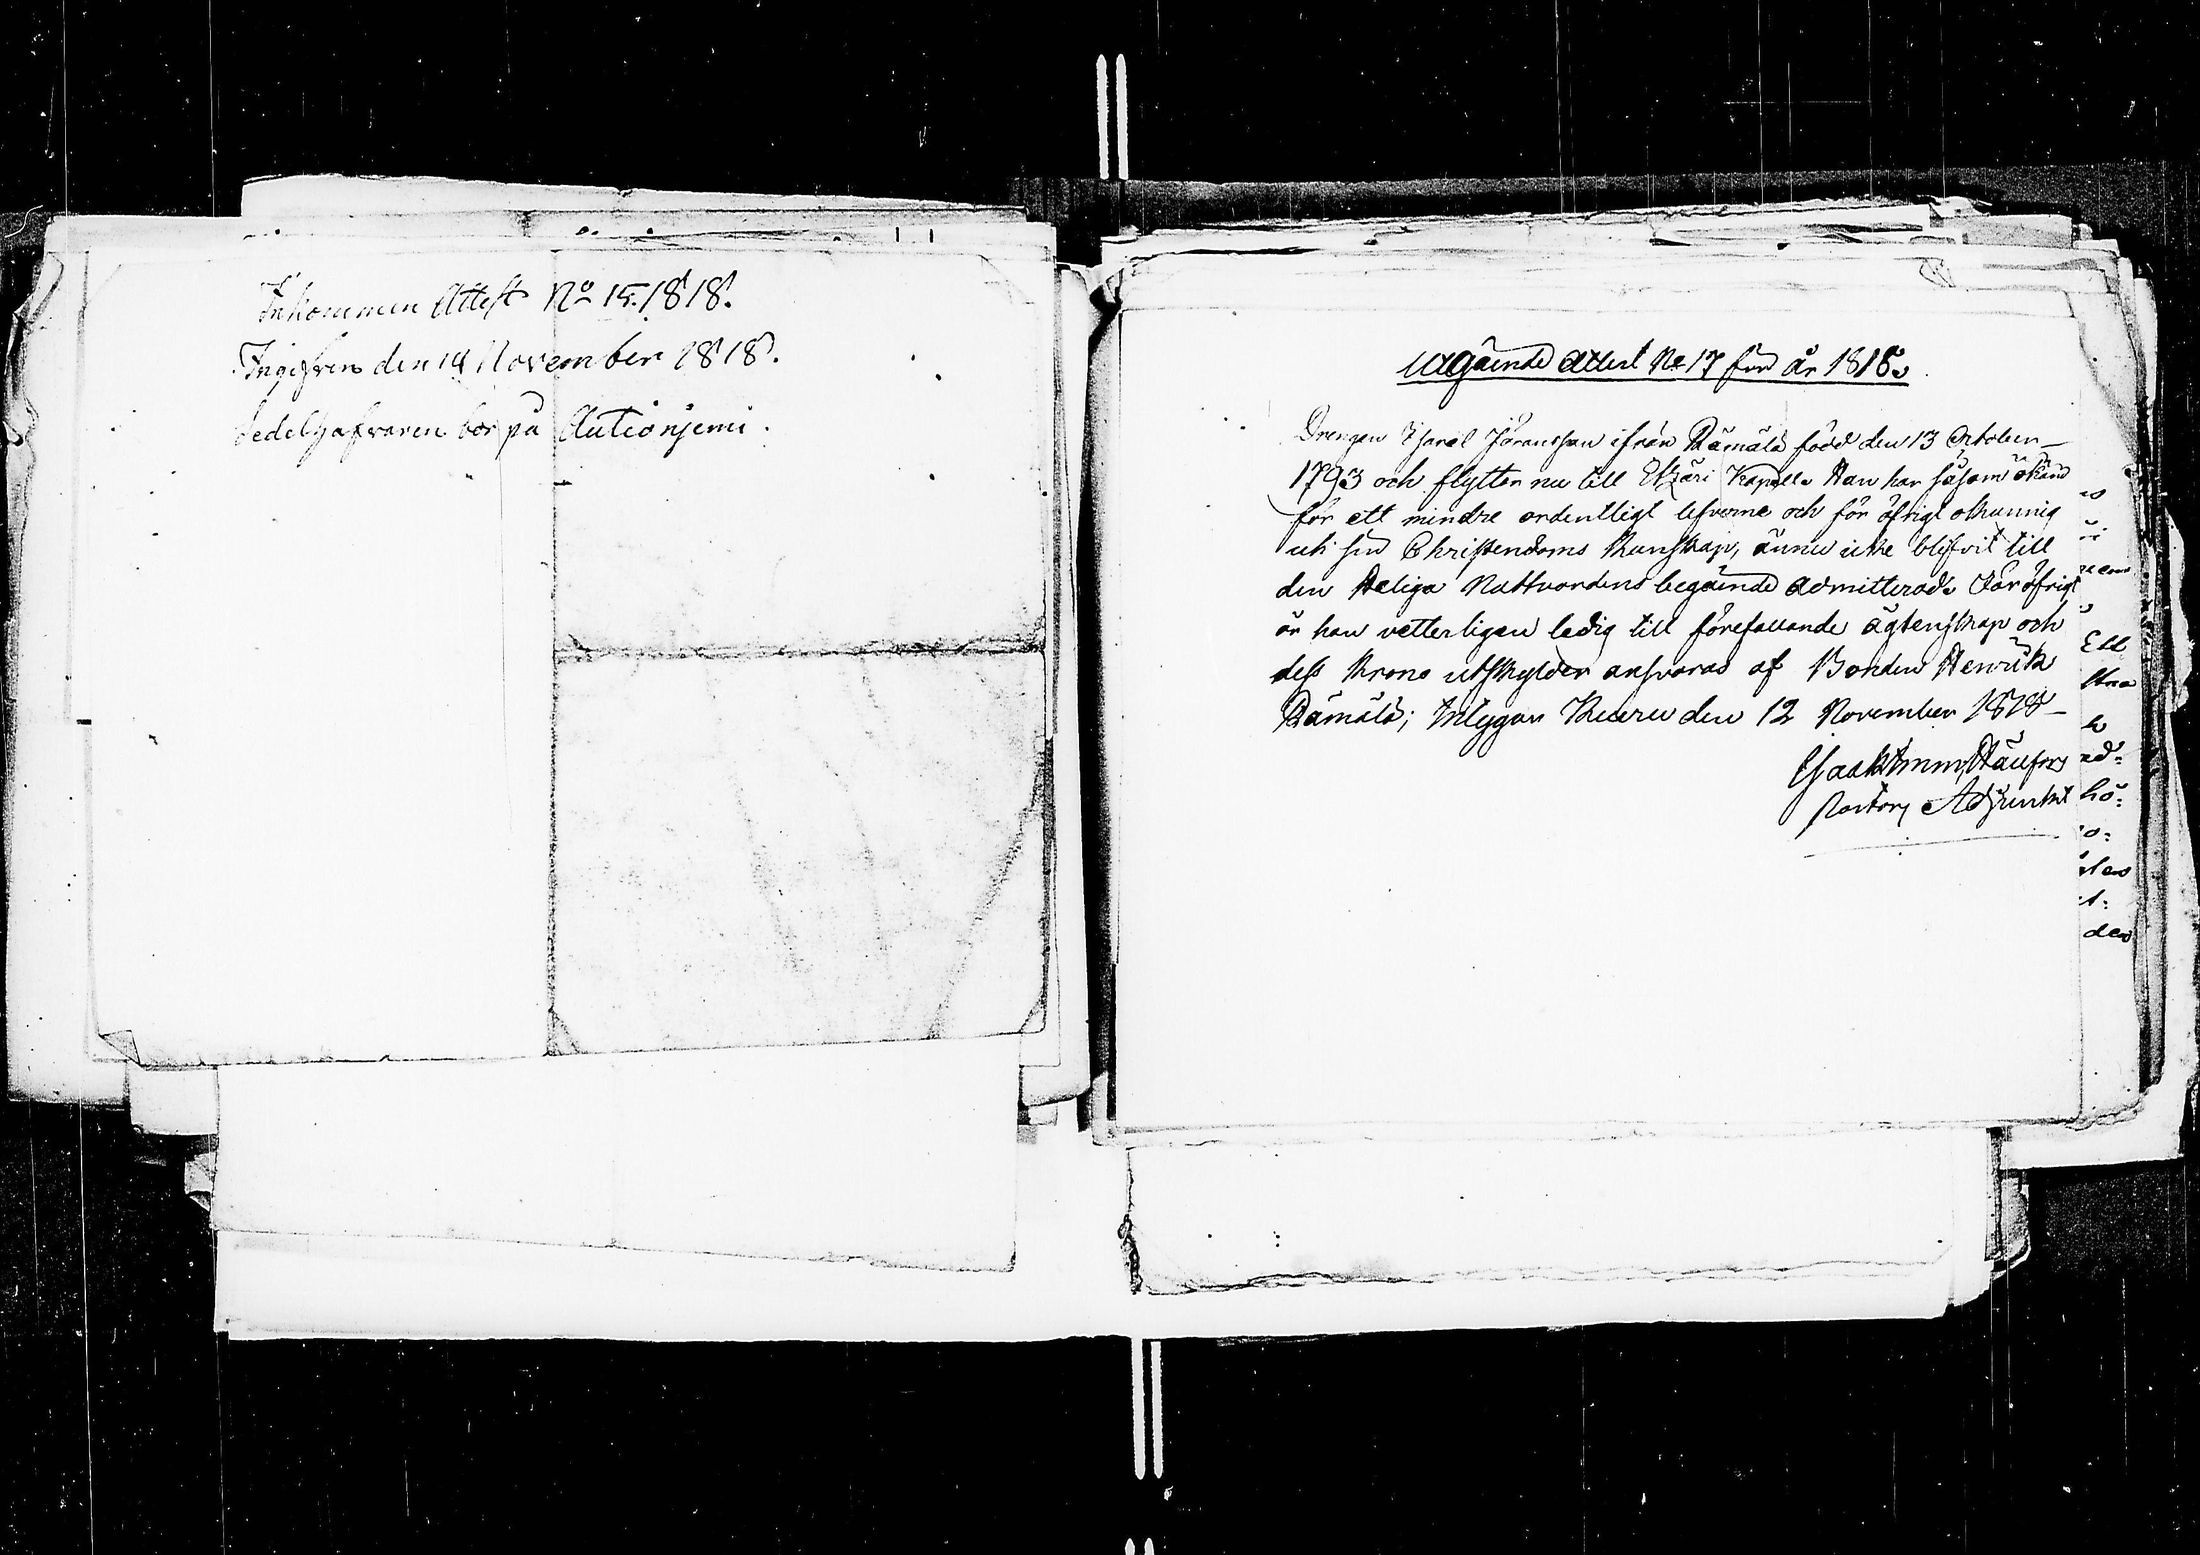 Inkommen Attest No 15. 1818.
Ingifven den 14 November 1818.
Sedelhafvaren bor på Autionjemi.
Utgående Attest No 17 för år 1818.
Drengen Israel Jöransson ifrån Rämälä född den 13 October
1793 och flyttar nu till Etzäri Kapell. Han har såsom okänd
för ett mindre ordentligt lefverne och för öfrigt okunnig
uti sin Christendoms kunskap, ännu icke blifvit till
den Heliga Nattvardens begående admitterad. För öfrigt
är han vetterligen ledig till förefallande ägtenskap och
dess Krono utskylder ansvaras af Bonden Henrik
Rämälä; Intygar Kuru den 12 November 1818
Pastors Adjunkt
Ett
ad:
hö:
o:
t:
den